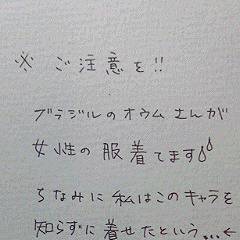 ※ ご注意を!!
ブラジルのオウムさんが
女性の服着てます💧
ちなみに私はこのキャラを
知らずに着せたという...←